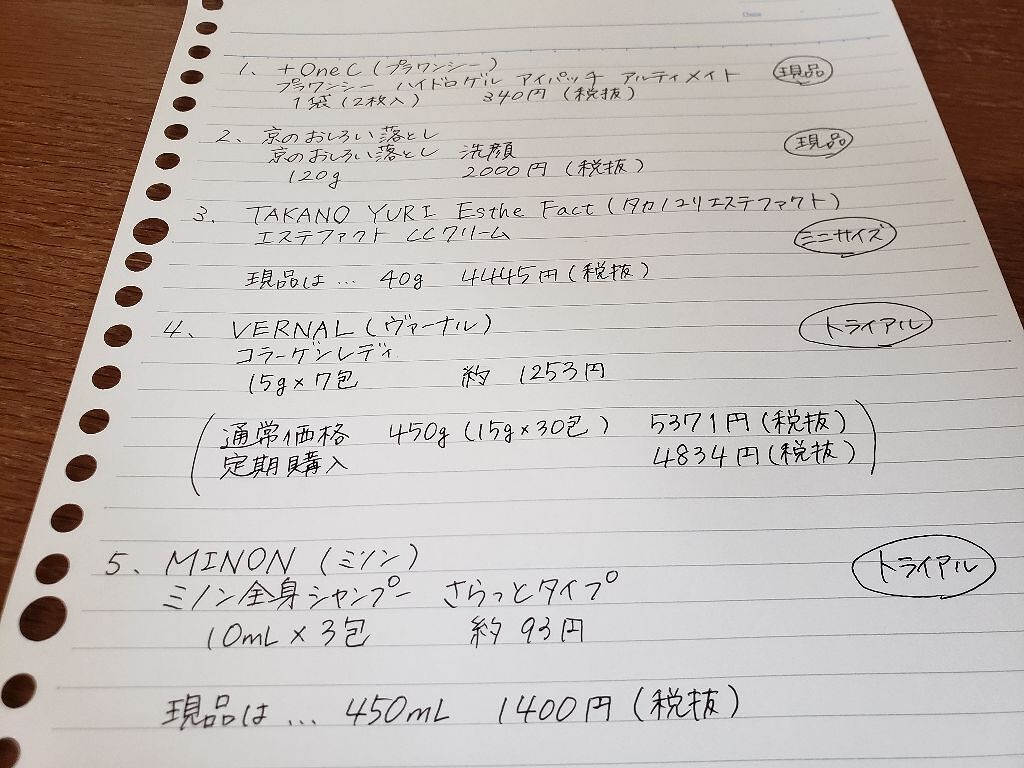 1、 +OneC (プラワンシー) 現品
プラワンシー ハイドロゲル アイパッチ アルティメイト
1袋 (2枚入) 340円 (税抜)
2、 京のおしろい落とし 現品
京のおしろい落とし 洗顔
120g 2000円 (税抜)
3、 TAKANO YURI Esthe Fact (タカノユリエステファクト)
エステファクト CCクリーム ミニサイズ
現品は… 40g 4445円 (税抜)
4、 VERNAL (ヴァーナル) トライアル
コラーゲンレディ
15g×7包 約 1253円
(通常価格 450g (15g×30包) 5371円 (税抜)
定期購入 4834円 (税抜))
5、 MINON (ミノン) トライアル
ミノン全身シャンプー さらっとタイプ
10mL×3包 約 93円
現品は… 450mL 1400円 (税抜)